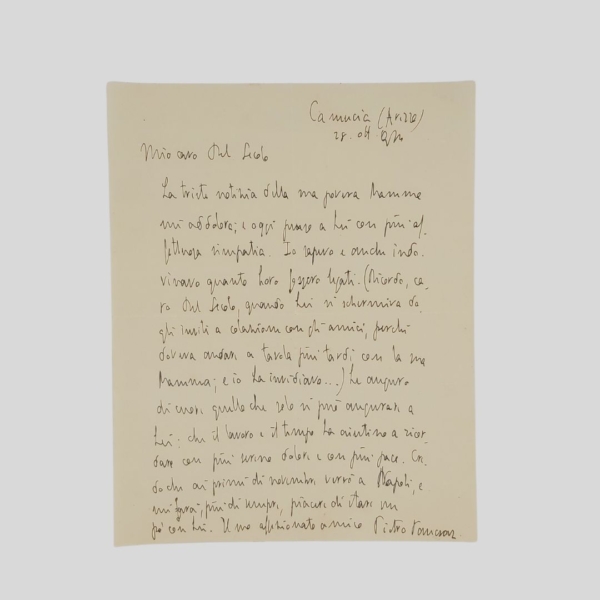 Camucia (Arezzo)
28 ott.
Mio caro Del Secolo
La triste notizia della sua povera Mamma
mi addolora; e oggi penso a Lei con più af-
fettuosa simpatia. Io sapevo e anche indo-
vinavo quanto Loro fossero legati. (Ricordo, ca-
ro Del Secolo, quando Lei si schermiva da-
gli inviti a colazione con gli amici, perché
doveva andare a tavola più tardi, con la sua
Mamma; e io La invidiavo...) Le auguro
di cuore quello che solo si può augurare a
Lei: che il lavoro e il tempo La aiutino a ricor-
dare con più sereno dolore e con più pace. Cre-
do che ai primi di novembre verrò a Napoli, e
mi farà, più di sempre, piacere di stare un
po' con Lei. Il suo affezionato amico Pietro Pancrazi